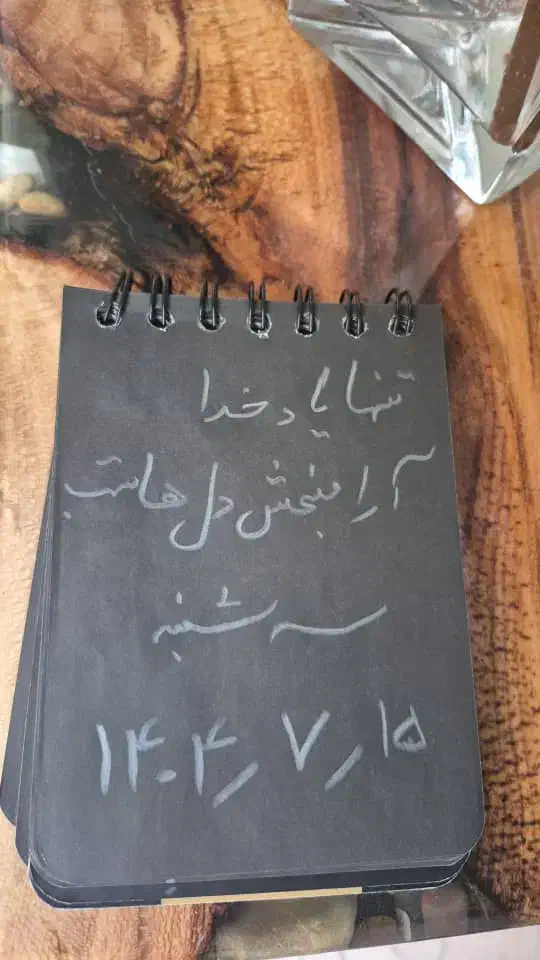 تنها یاد خدا
آرامبخش دل هاست
سه شنبه
۱۴۰۴٫۷٫۱۵